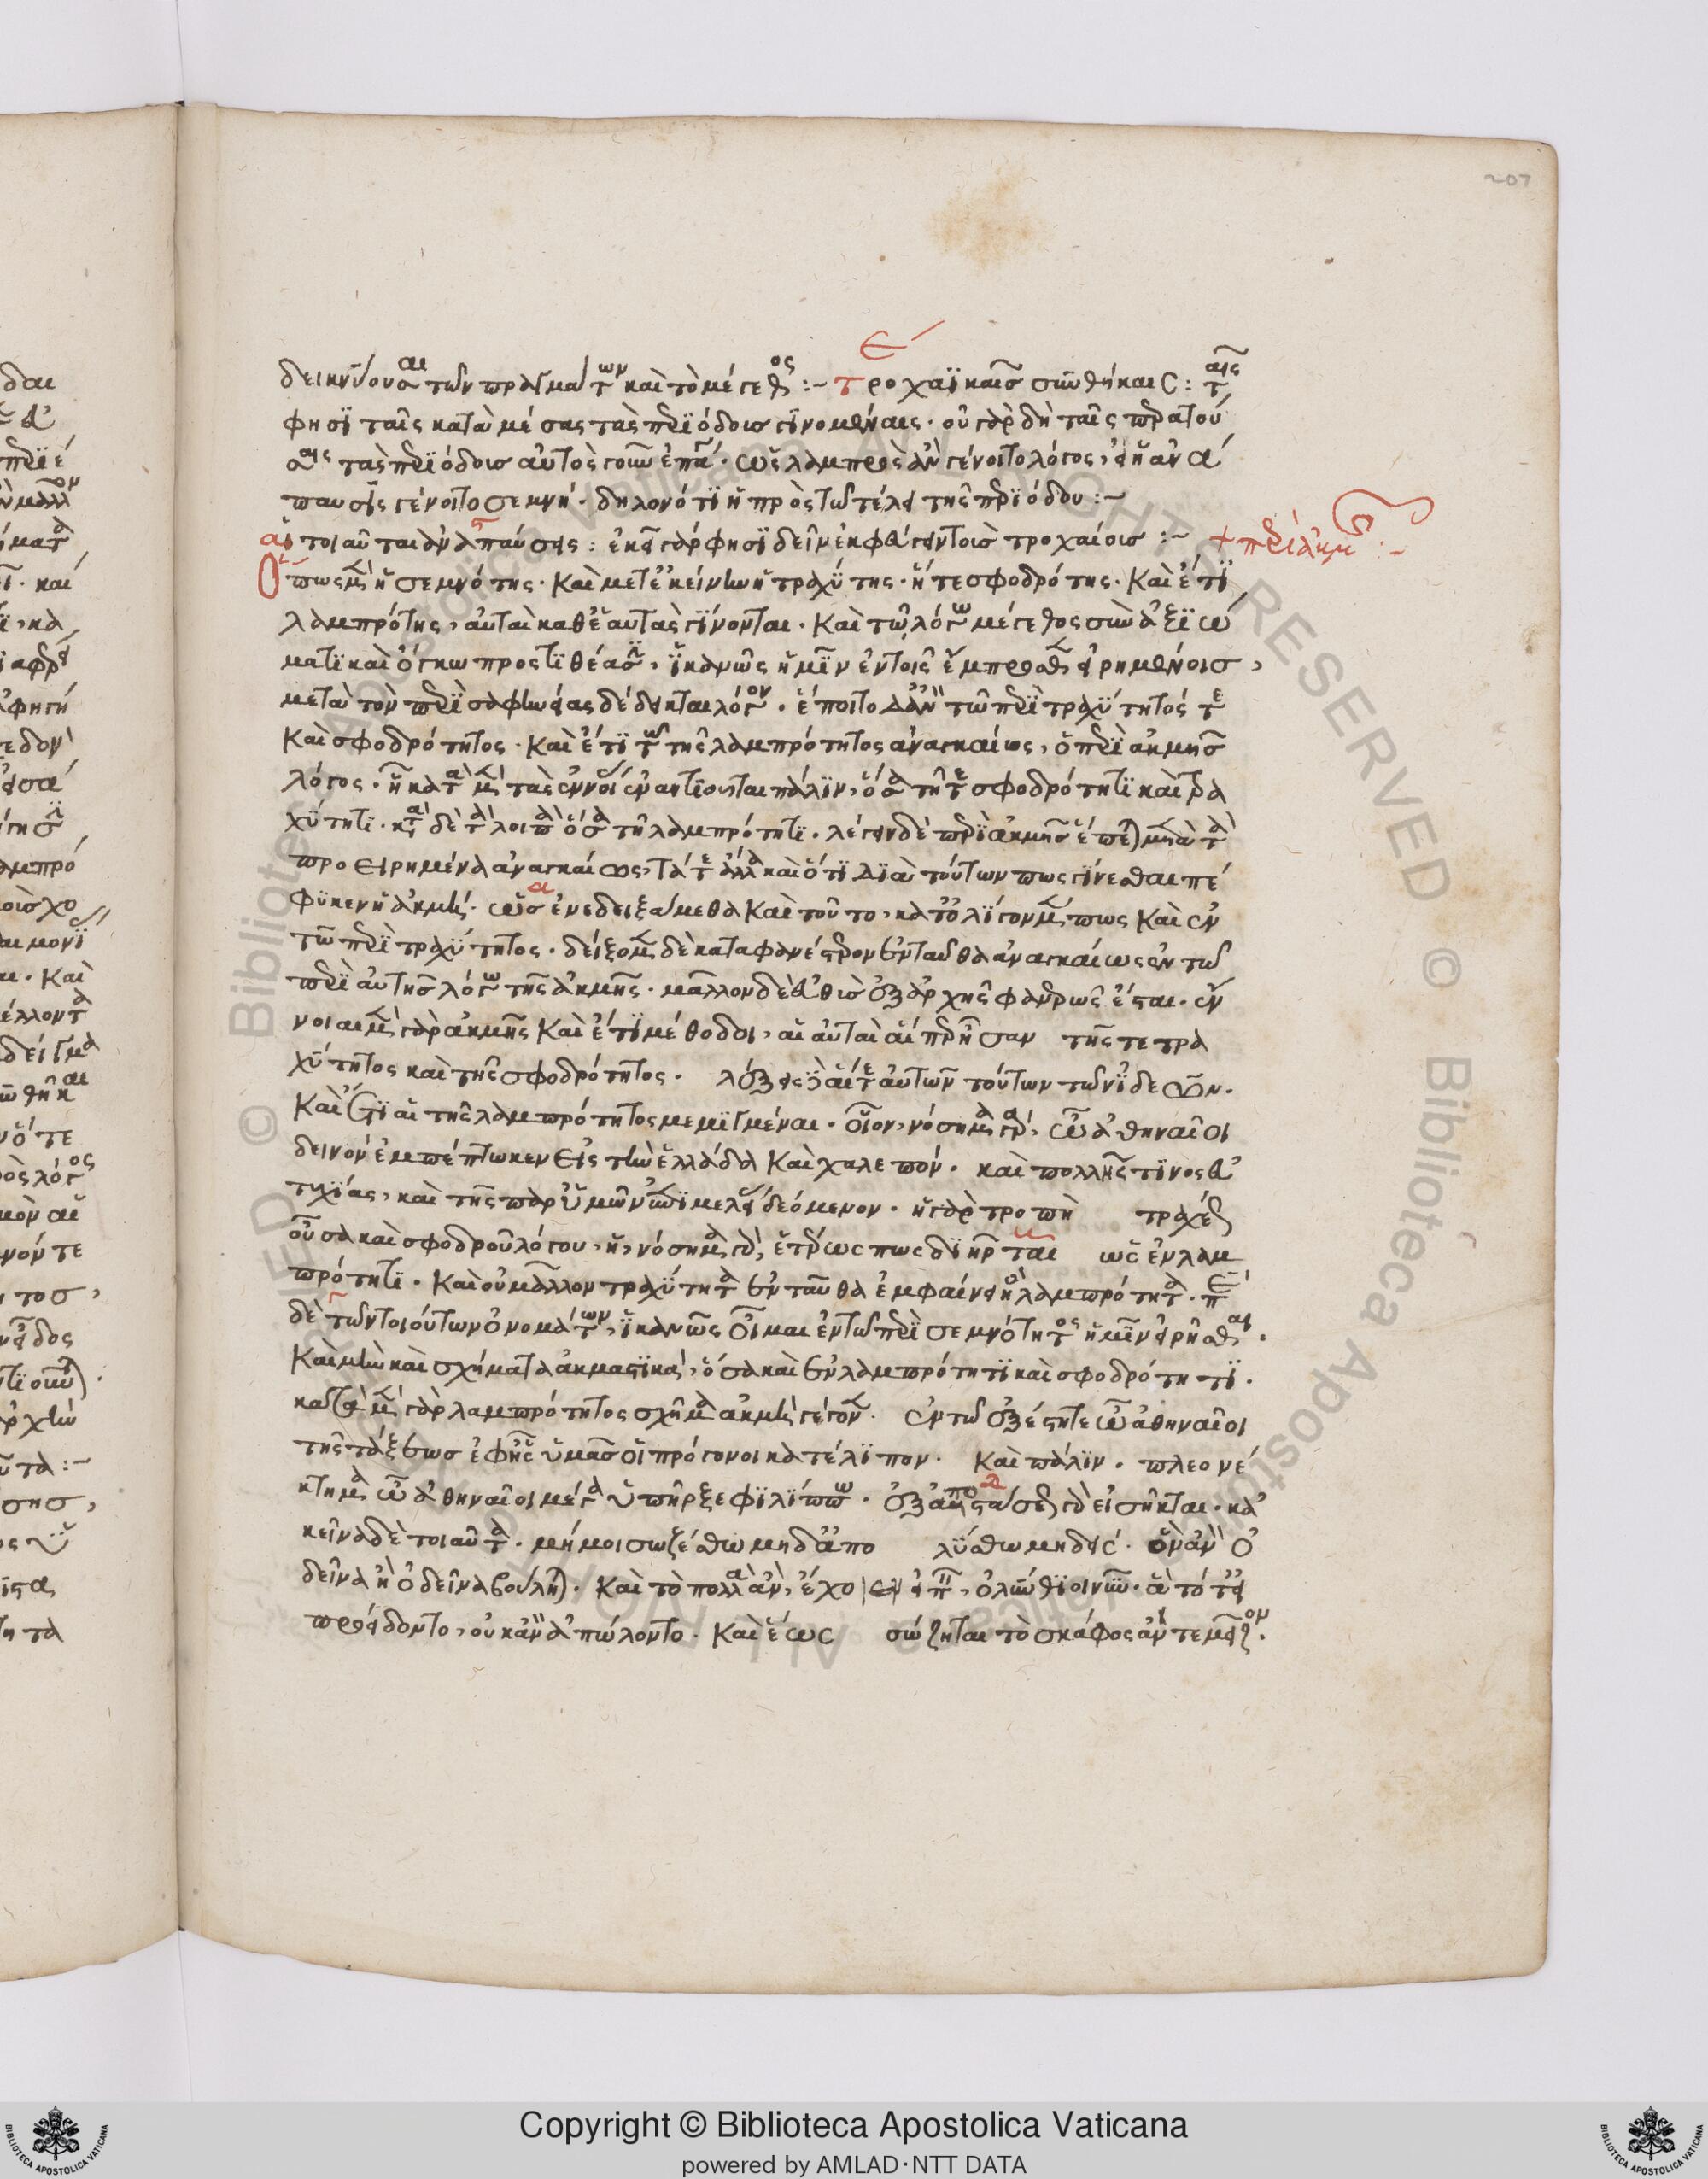 207
δεικνύουσαι τῶν πραγμάτων καὶ τὸ μέγεθος :~ τροχαϊκαῖς συνθήκαις : ταῖς
φησὶ ταῖς κατὰ μέσας τὰς περιόδους γινομέναις · οὐ γὰρ δὴ ταῖς
τὰς περιόδους αὐτὸς · ὡς λαμπρὸς ἂν γένοιτο λόγος, ἀνά
παυσις γένοιτο σεμνή · δηλονότι ἡ πρὸς τῷ τέλει τῆς περιόδου :~
αἱ τοιαῦται ἀναπαύσεις : ἐκεῖ γάρ φησι δεῖν ἐκφεύγειν τοὺς τροχαίους :~ + περὶ ἀκμῆς :~
Ὅπως μὲν ἡ σεμνότης · καὶ μετ' ἐκείνην ἡ τραχύτης · ἥ τε σφοδρότης · καὶ ἔτι
λαμπρότης, αὐταὶ καθ' ἑαυτὰς γίνονται · καὶ τῷ λόγῳ μέγεθος σὺν ἀξιώ
ματι καὶ ὄγκῳ προστιθέασιν, ἱκανῶς ἡμῖν ἐν τοῖς ἔμπροσθεν εἰρημένοις,
μετὰ τὸν περὶ σαφηνείας δέδεικται λόγον · ἕποιτο δ' ἂν τῷ περὶ τραχύτητός τε
καὶ σφοδρότητος · καὶ ἔτι τῷ τῆς λαμπρότητος ἀναγκαίως, ὁ περὶ ἀκμῆς
λόγος · ἣ κατὰ μὲν τὰς ἐννοίας πάλιν, τῇ τε σφοδρότητι καὶ τρα
χύτητι · κατὰ δὲ τὰ λοιπὰ ὅσα τῇ λαμπρότητι · λέγειν δὲ περὶ ἀκμῆς ἕπεται μετὰ τὰ
προειρημένα ἀναγκαίως, τά τε ἄλλα καὶ ὅτι διὰ τούτων πως γίνεσθαι πέ
φυκεν ἡ ἀκμή · ὡς ἐνεδειξάμεθα καὶ τοῦτο, κατ' ὀλίγον μέν πως καὶ ἐν
τῷ περὶ τραχύτητος · δείξομεν δὲ καταφανέστερον ἐνταῦθα ἀναγκαίως ἐν τῷ
περὶ αὐτῆς λόγῳ τῆς ἀκμῆς · μᾶλλον δὲ εὐθὺς ἐξ ἀρχῆς φανερῶς ἔσται · ἔν
νοιαι μὲν γὰρ ἀκμῆς καὶ ἔτι μέθοδοι, αἱ αὐταὶ αἵπερ ἦσαν τῆς τε τρα
χύτητος καὶ τῆς σφοδρότητος · λέξεις δὲ αἵ τε αὐτῶν τούτων τῶν ἰδεῶν ·
καὶ ἔτι αἱ τῆς λαμπρότητος μεμιγμέναι · οἷον, νόσημα γάρ, ὦ ἀθηναῖοι
δεινὸν ἐμπέπτωκεν εἰς τὴν ἑλλάδα καὶ χαλεπόν · καὶ πολλῆς τινος εὐ
τυχίας, καὶ τῆς παρ' ὑμῶν ἐπιμελείας δεόμενον · ἡ γὰρ τροπὴ τραχεῖα
οὖσα καὶ σφοδροῦ λόγου, ἡ, νόσημα γάρ, ἑτέρως πως διῄρηται ὡς ἐν λαμ
πρότητι · καὶ οὐ μᾶλλον τραχύτητα ἐνταῦθα ἐμφαίνει ἢ λαμπρότητα · περὶ
δὲ τῶν τοιούτων ὀνομάτων, ἱκανῶς οἶμαι ἐν τῷ περὶ σεμνότητος ἡμῖν εἰρῆσθαι ·
καὶ μὴν καὶ σχήματα ἀκμαστικά, ὅσα καὶ ἐν λαμπρότητι καὶ σφοδρότητι ·
κατὰ μὲν γὰρ λαμπρότητος σχῆμα ἀκμὴ γέγονεν · ἐν τῷ ἐξέστητε ὦ ἀθηναῖοι
τῆς τάξεως ἐφ' ἧς ὑμᾶς οἱ πρόγονοι κατέλιπον · καὶ πάλιν · πλεονέ
κτημα ὦ ἀθηναῖοι μέγα ὑπῆρξε φιλίππῳ · ἐξ ἀποστάσεως γὰρ εἰσῆκται · κἀ
κεῖνα δὲ τοιαῦτα · μή μοι σωζέσθω μηδ' ἀπολλύσθω μηδείς · ὃν ἂν ὁ
δεῖνα ἢ ὁ δεῖνα βούληται · καὶ τὸ πολλὰ ἂν, ἔχοιεν εἰπεῖν, ὀλύνθιοι νῦν · ἃ τότ' εἰ
προείδοντο, οὐκ ἂν ἀπώλοντο · καὶ ἕως σώζηται τὸ σκάφος ἄν τε μεῖζον ·
Copyright © Biblioteca Apostolica Vaticana
powered by AMLAD·NTT DATA